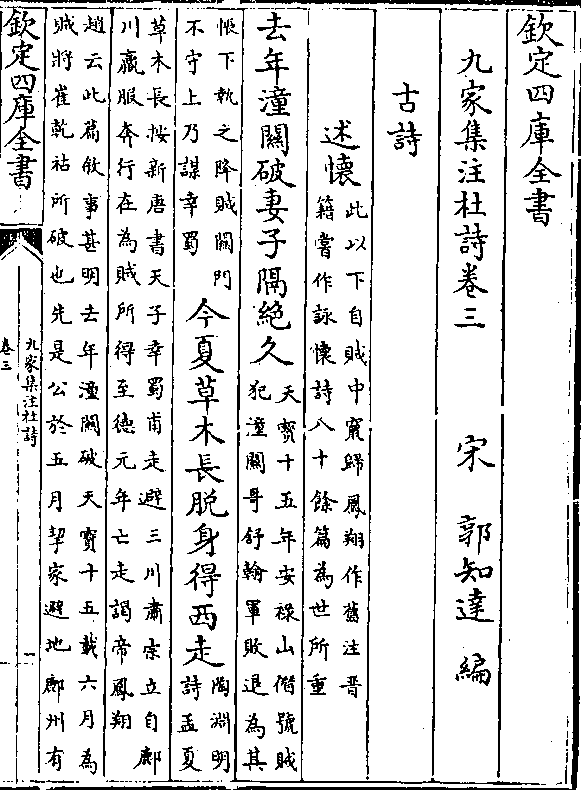 欽定四庫全書
九家集注杜詩卷三　宋　郭知達　編
古詩
述懷
此以下自賊中竄歸鳳翔作舊注晋
籍嘗作詠懷詩八十餘篇為世所重
去年潼關破妻子隔絶久
天寳十五年安禄山僭號賊
犯潼關哥舒翰軍敗退為其
帳下執之降賊關門
不守上乃謀幸蜀
今夏草木長脱身得西走
陶淵明
詩孟夏
草木長按新唐書天子幸蜀甫走避三川肅宗立自鄜
川羸服奔行在為賊所得至徳元年亡走謁帝鳳翔
趙云此篇敘事甚明去年潼關破天寳十五載六月為
賊將崔乾祐所破也先是公於五月挈家避地鄜州有
欽定四庫全書
九家集注杜詩
卷三
一